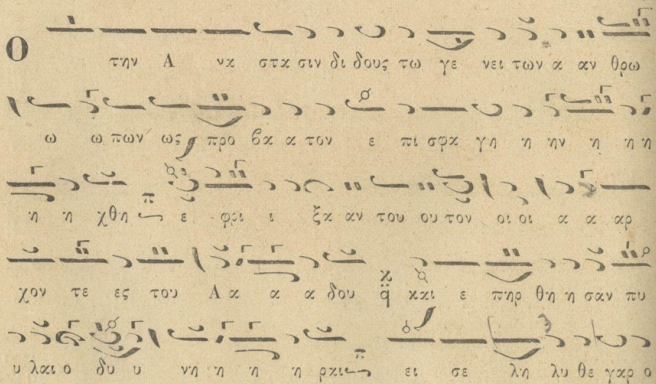 Ο την Α να στα σιν δι δους τω γε νει των α αν θρω
ω ω πων ως προ βα α τον ε πι σφα γη η ην η η η
η η χθη ε φρι ι ξα αν του ου τον οι οι α α αρ
χον τε ες του Α α α α δου και ε πηρ θη η σαν πυ
υ λαι ο δυ υ νη η η η ραι ει σε λη λυ θε γαρ ο